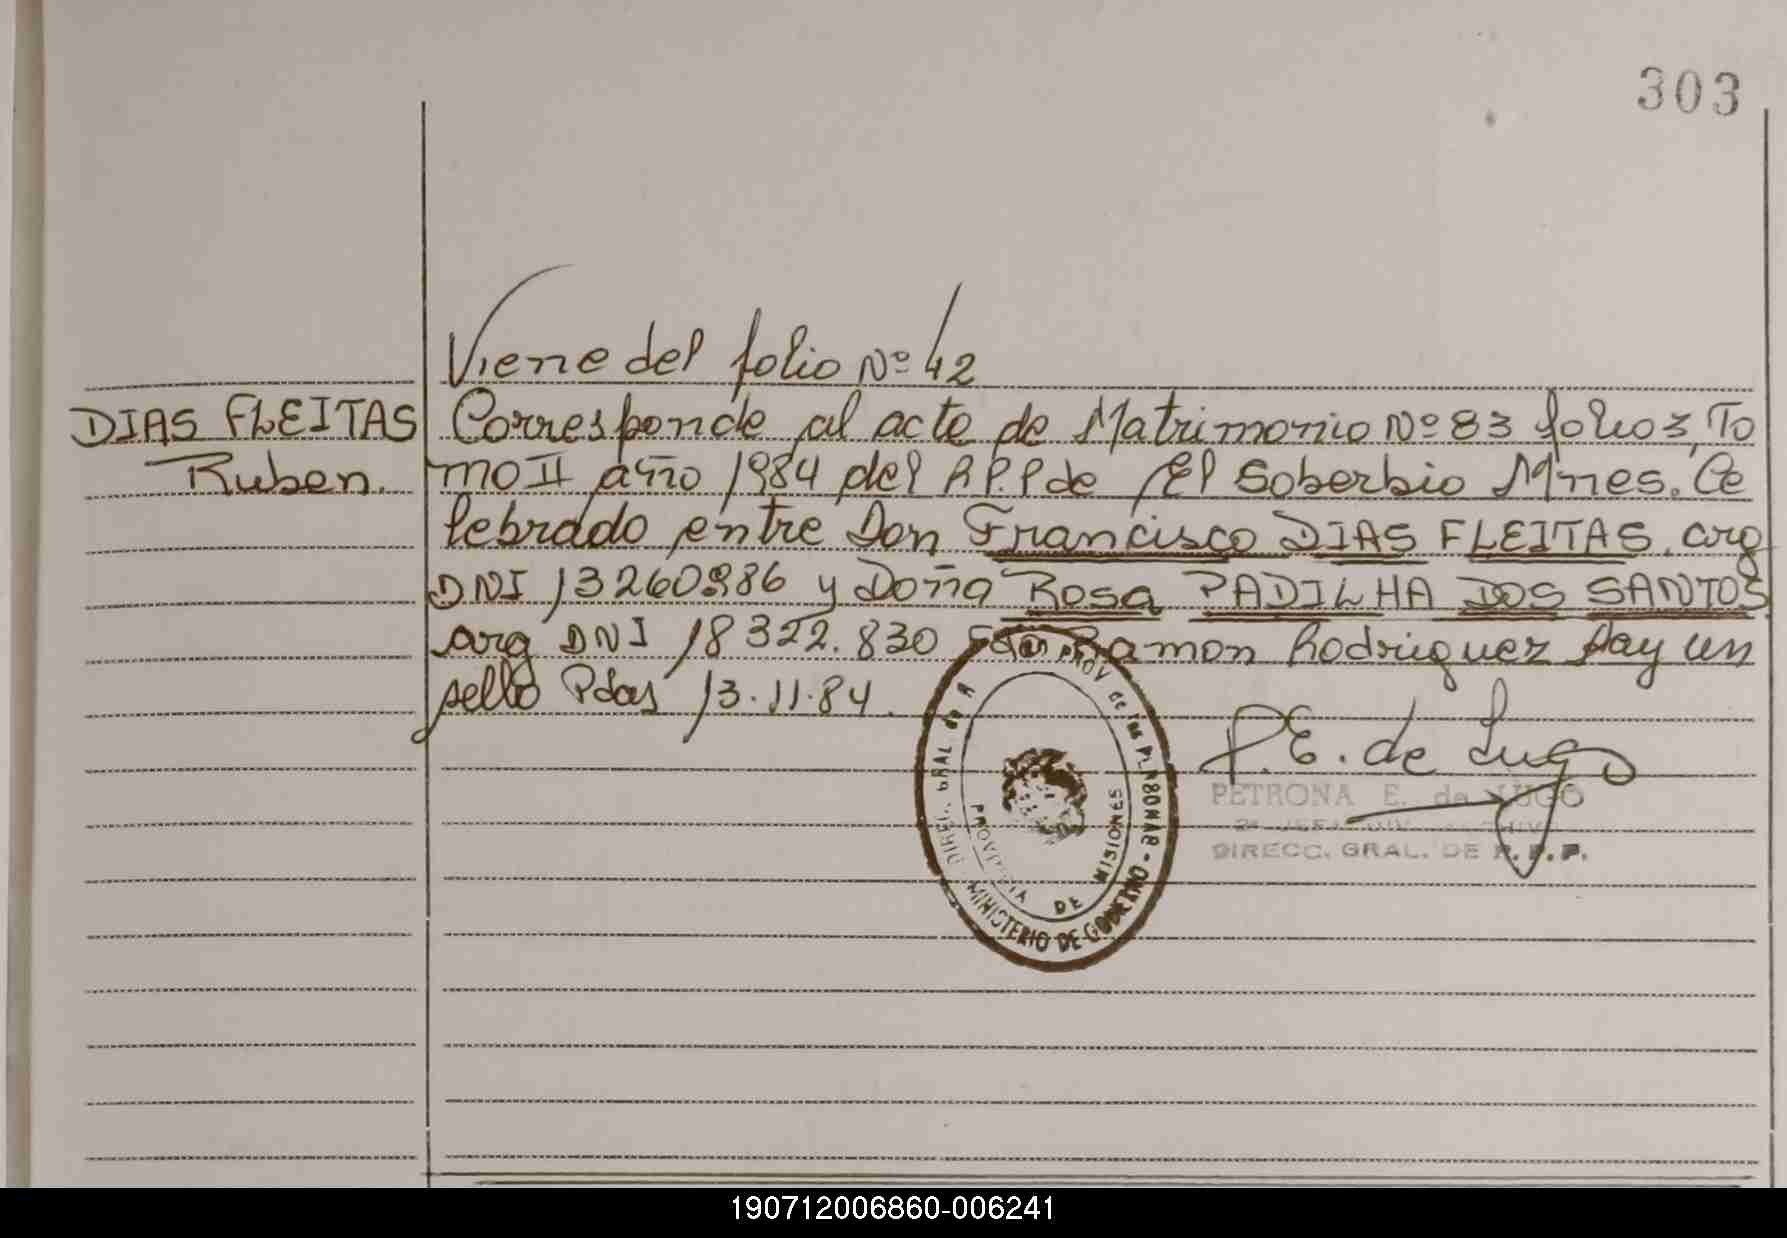 303
Viene del folio Nº 42
DIAS FLEITAS
Ruben.
Corresponde al acta de Matrimonio Nº 83 folio 3, To
mo II año 1984 del R.P.P de El Soberbio Mnes. Ce
lebrado entre Don Francisco DIAS FLEITAS. arg
DNI 13260986 y Doña Rosa PADILHA DOS SANTOS
arg DNI 18322.830 Fdo: Ramon Rodriguez Hay un
sello Pdas 13.11.84.
P.E. de Lugo
PETRONA E. de LUGO
DIRECC. GRAL. DE R.P.P.
DIREC. GRAL de R PROV de las PERSONAS - MINISTERIO DE GOBIERNO
PROVINCIA DE MISIONES
190712006860-006241